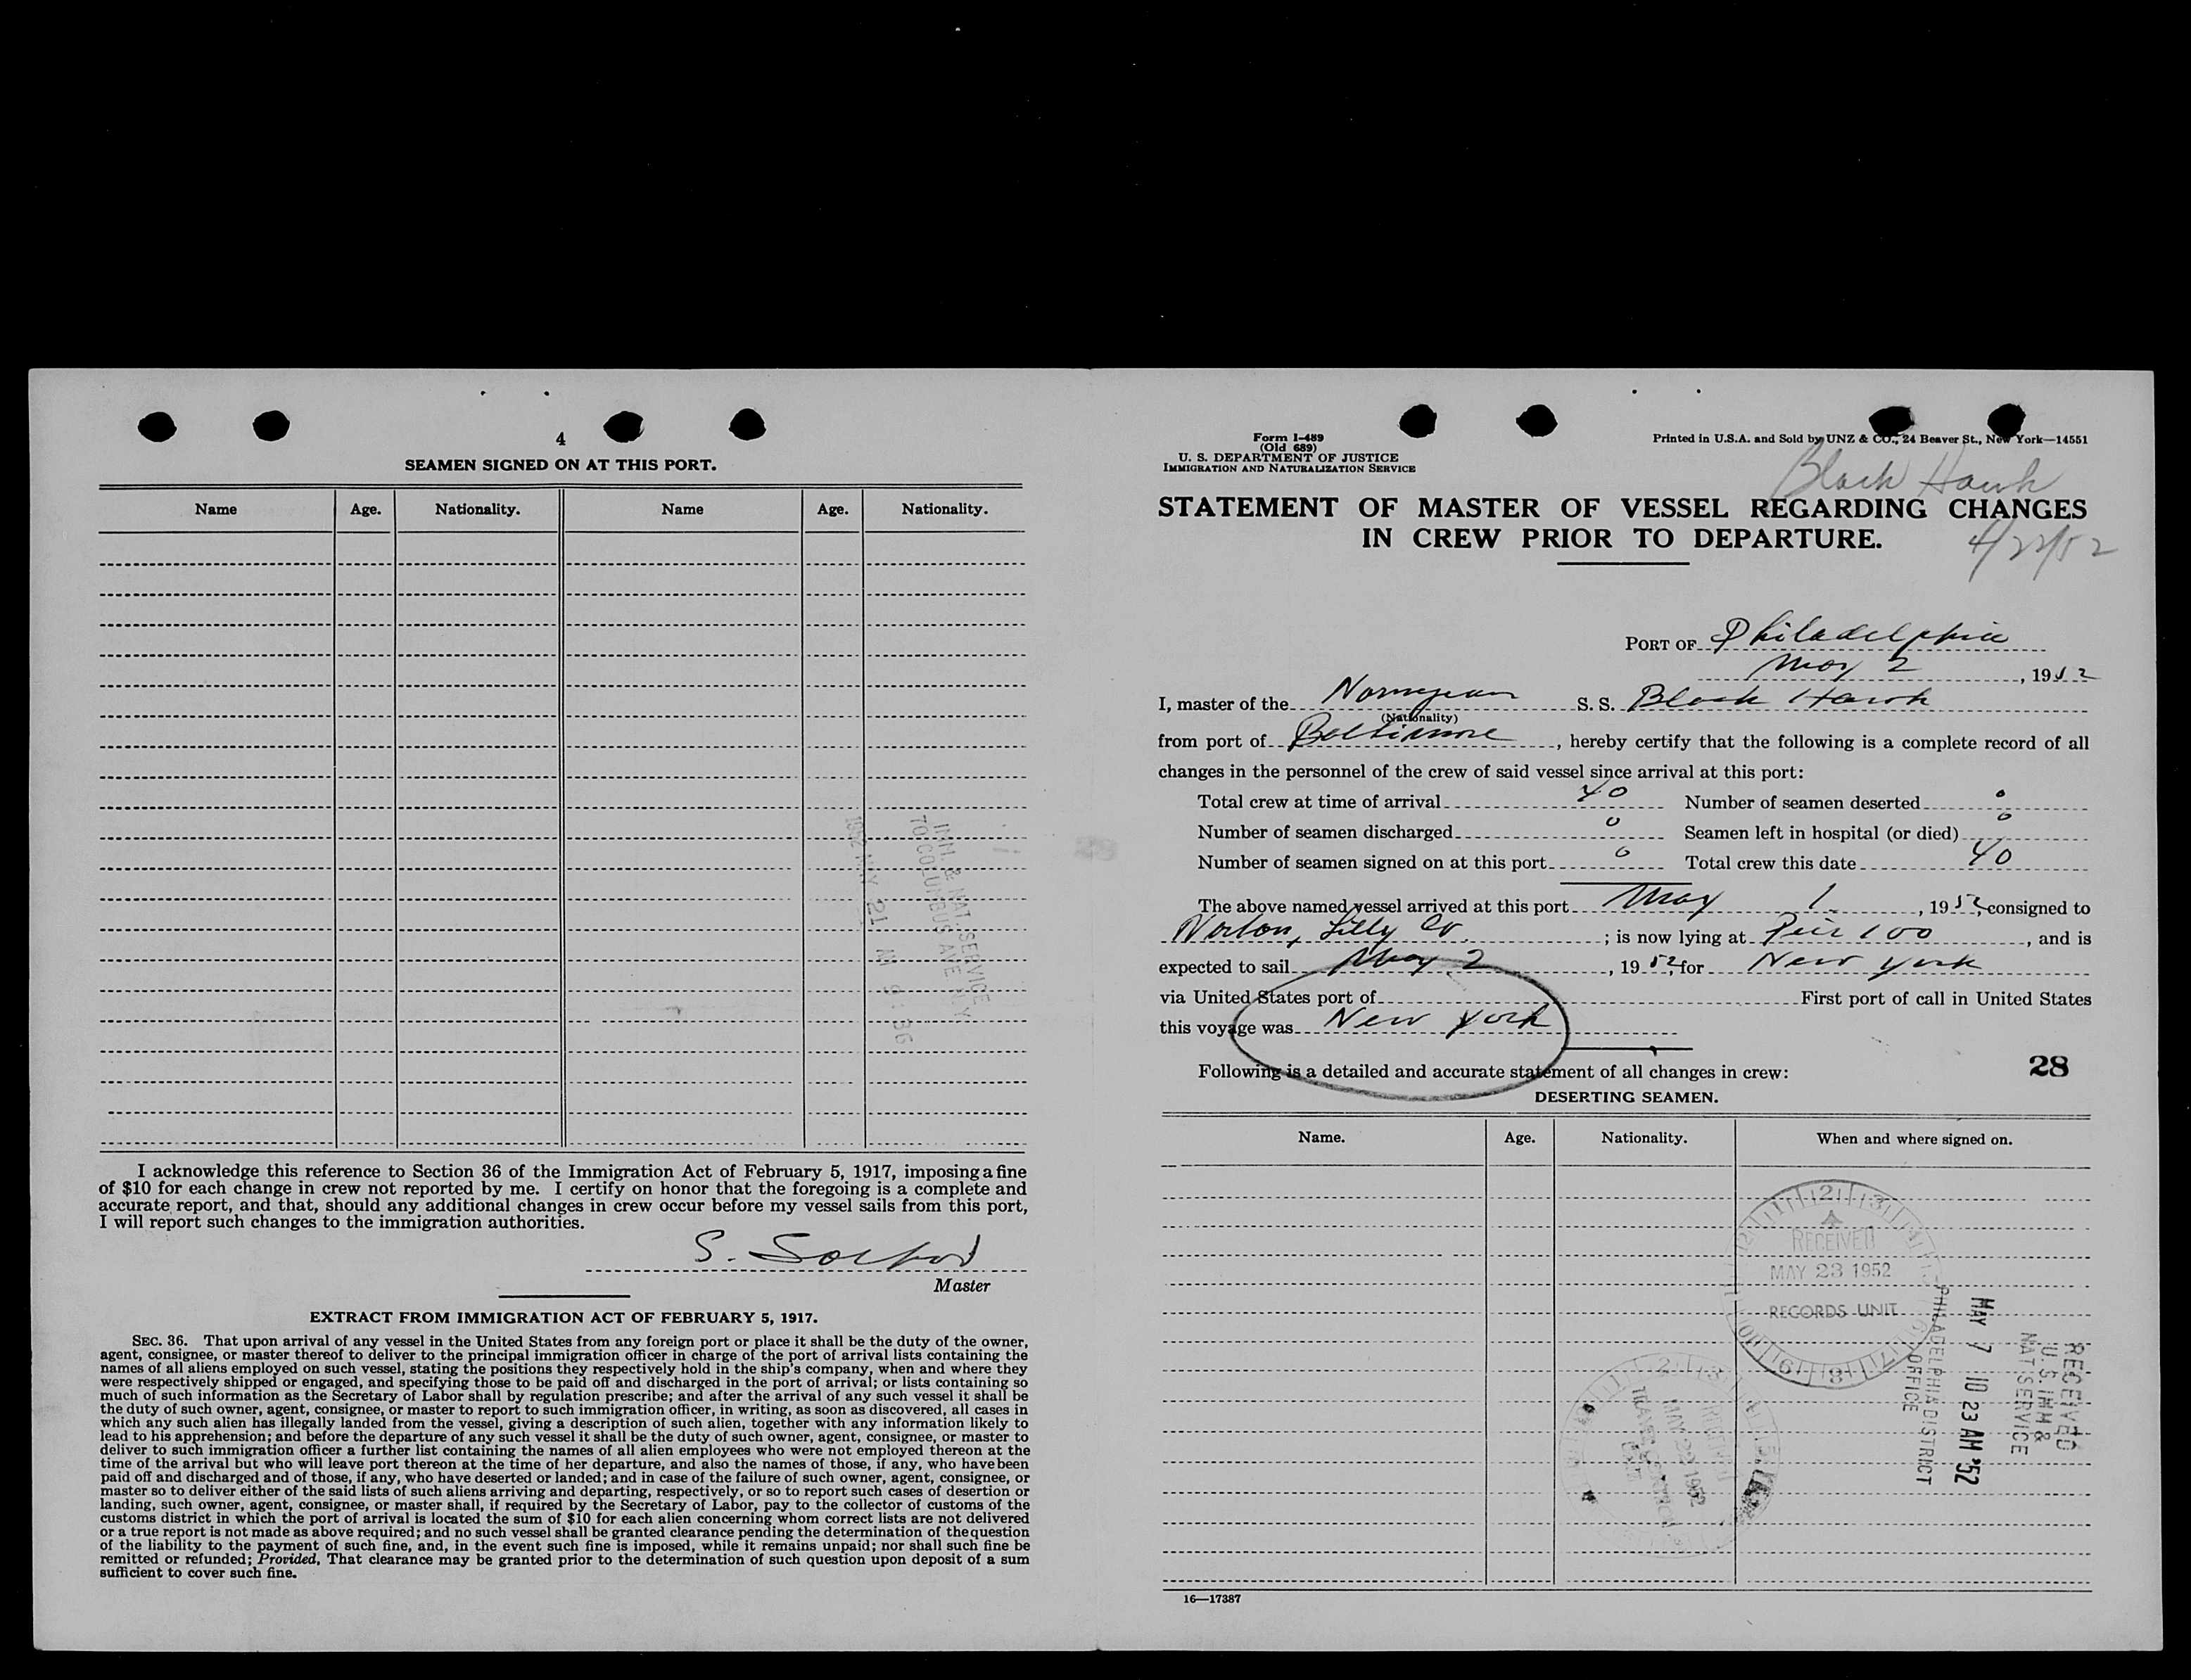 4
SEAMEN SIGNED ON AT THIS PORT.
Name Age. Nationality. Name Age. Nationality.
IMM. & NAT. SERVICE
70 COLUMBUS AVE N.Y.
1952 MAY 21 AM 9:36
I acknowledge this reference to Section 36 of the Immigration Act of February 5, 1917, imposing a fine
of $10 for each change in crew not reported by me. I certify on honor that the foregoing is a complete and
accurate report, and that, should any additional changes in crew occur before my vessel sails from this port,
I will report such changes to the immigration authorities.
S.
Master
EXTRACT FROM IMMIGRATION ACT OF FEBRUARY 5, 1917.
SEC. 36. That upon arrival of any vessel in the United States from any foreign port or place it shall be the duty of the owner,
agent, consignee, or master thereof to deliver to the principal immigration officer in charge of the port of arrival lists containing the
names of all aliens employed on such vessel, stating the positions they respectively hold in the ship's company, when and where they
were respectively shipped or engaged, and specifying those to be paid off and discharged in the port of arrival; or lists containing so
much of such information as the Secretary of Labor shall by regulation prescribe; and after the arrival of any such vessel it shall be
the duty of such owner, agent, consignee, or master to report to such immigration officer, in writing, as soon as discovered, all cases in
which any such alien has illegally landed from the vessel, giving a description of such alien, together with any information likely to
lead to his apprehension; and before the departure of any such vessel it shall be the duty of such owner, agent, consignee, or master to
deliver to such immigration officer a further list containing the names of all alien employees who were not employed thereon at the
time of the arrival but who will leave port thereon at the time of her departure, and also the names of those, if any, who have been
paid off and discharged and of those, if any, who have deserted or landed; and in case of the failure of such owner, agent, consignee, or
master so to deliver either of the said lists of such aliens arriving and departing, respectively, or so to report such cases of desertion or
landing, such owner, agent, consignee, or master shall, if required by the Secretary of Labor, pay to the collector of customs of the
customs district in which the port of arrival is located the sum of $10 for each alien concerning whom correct lists are not delivered
or a true report is not made as above required; and no such vessel shall be granted clearance pending the determination of the question
of the liability to the payment of such fine, and, in the event such fine is imposed, while it remains unpaid; nor shall such fine be
remitted or refunded; Provided, That clearance may be granted prior to the determination of such question upon deposit of a sum
sufficient to cover such fine.
Form I-489
(Old 689)
U. S. DEPARTMENT OF JUSTICE
IMMIGRATION AND NATURALIZATION SERVICE
Printed in U.S.A. and Sold by UNZ & CO., 24 Beaver St., New York—14551
Black Hawk
STATEMENT OF MASTER OF VESSEL REGARDING CHANGES
IN CREW PRIOR TO DEPARTURE.
4/22/52
PORT OF Philadelphia
May 2, 1952
I, master of the Norwegian S. S. Black Hawk
(Nationality)
from port of Baltimore, hereby certify that the following is a complete record of all
changes in the personnel of the crew of said vessel since arrival at this port:
Total crew at time of arrival 40 Number of seamen deserted 0
Number of seamen discharged 0 Seamen left in hospital (or died) 0
Number of seamen signed on at this port 0 Total crew this date 40
The above named vessel arrived at this port May 1, 1952, consigned to
Norton, Lilly Co. ; is now lying at Pier 100, and is
expected to sail May 2, 1952, for New York
via United States port of First port of call in United States
this voyage was New York
Following is a detailed and accurate statement of all changes in crew:
28
DESERTING SEAMEN.
Name. Age. Nationality. When and where signed on.
RECEIVED
MAY 23 1952
RECORDS UNIT
RECEIVED
U. S. IMM &
NAT. SERVICE
MAY 7 10 23 AM '52
PHILADELPHIA DISTRICT
OFFICE
MAY 22 1952
16—17387